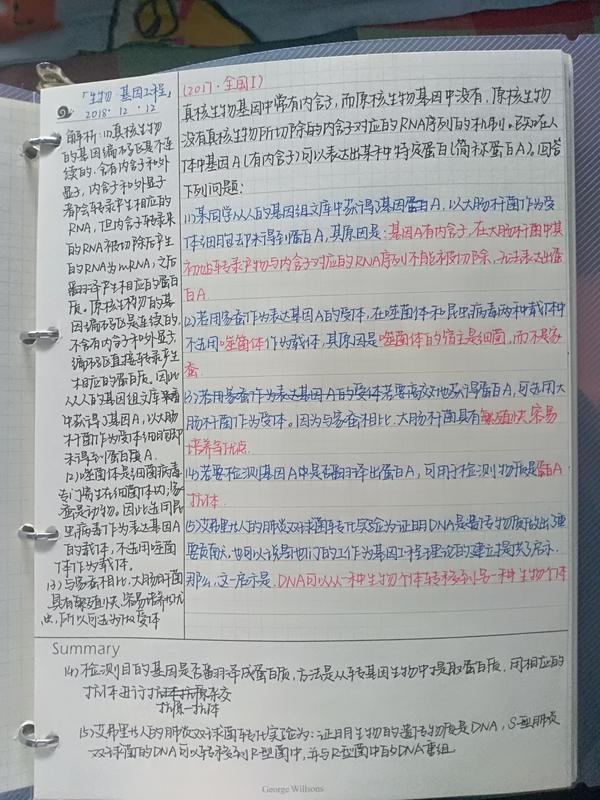 「生物·基因工程」
2018.12.12
解析:(1)真核生物
的基因编码区是不连
续的,含有内含子和外
显子,内含子和外显子
都会转录产生相应的
RNA,但内含子转录来
的RNA被切除后产生
的RNA为mRNA,之后
翻译产生相应的蛋白
质。原核生物的基
因编码区是连续的,
不含有内含子和外显子,
编码区直接转录产生
相应的蛋白质。因此
从人的基因组文库
中获得了基因A,以大肠
杆菌作为受体细胞却
未得到蛋白质A.
(2)噬菌体是细菌病毒
专门寄生在细菌体内,家
蚕是动物。因此选用昆
虫病毒作为表达基因A
的载体,不选用噬菌
体作为载体。
(3)与家蚕相比,大肠杆菌
具有繁殖快、容易培养的优
点,所以可选为作为受体
(2017·全国I)
真核生物基因中常有内含子,而原核生物基因中没有,原核生物
没有真核生物所切除的内含子对应的RNA序列的机制。已知在人
体中基因A(有内含子)可以表达出某种特定蛋白(简称蛋白A)。回答
下列问题:
(1)某同学从人的基因组文库中获得了基因A,以大肠杆菌作为受
体细胞却未得到蛋白A,其原因是:基因A有内含子,在大肠杆菌中其
初始转录产物与内含子对应的RNA序列不能被切除,无法表达出蛋
白A.
(2)若用家蚕作为表达基因A的受体,在噬菌体和昆虫病毒两种载体中
不选用噬菌体作为载体,其原因是噬菌体的宿主是细菌,而不是家
蚕.
(3)若用家蚕作为表达基因A的受体若要高效地获得蛋白A,可选用大
肠杆菌作为受体。因为与家蚕相比,大肠杆菌具有繁殖快、容易
培养等优点.
(4)若要检测基因A中是否翻译出蛋白A,可用于检测物质是蛋白A
抗体.
(5)艾弗里等人的肺炎双球菌转化实验为证明DNA是遗传物质做出了重
要贡献,也可以说是他们的工作为基因工程理论的建立提供了启示.
那么,这一启示是.DNA可以从一种生物个体转移到另一种生物个体
Summary
(4)检测目的基因是否翻译成蛋白质,方法是从转基因生物中提取蛋白质,用相应的
抗体进行抗原杂交
抗原-抗体
(5)艾弗里等人的肺炎双球菌转化实验为:证明生物的遗传物质是DNA,S型肺炎
双球菌的DNA可以转移到R型菌中,并与R型菌中的DNA重组.
George Willsons